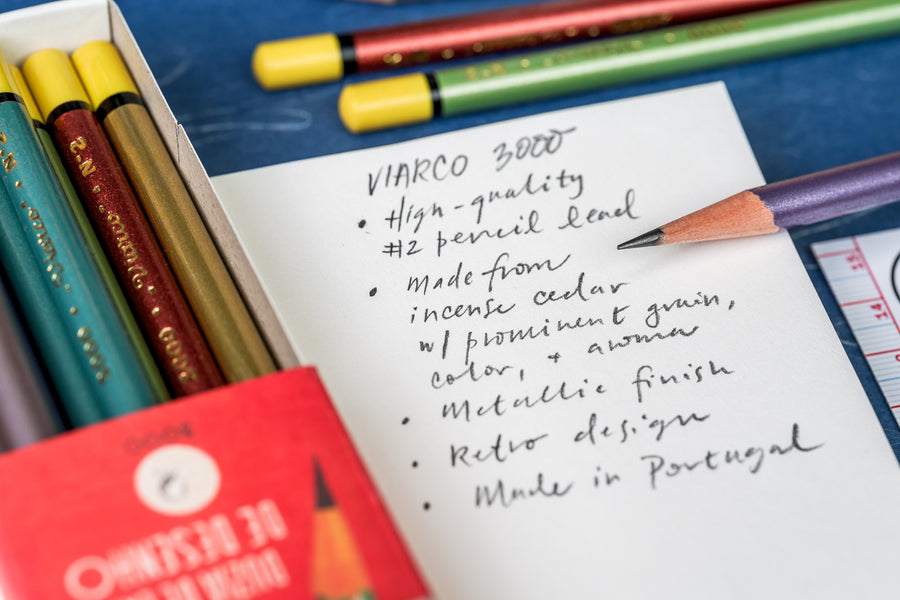 VIARCO 3000
• High-quality
#2 pencil lead
• Made from
incense cedar
w/ prominent grain,
color, + aroma
• Metallic finish
• Retro design
• Made in Portugal
Nº2 • Viarco • 3000
Nº2 • Viarco • 3000
3000
DE DESENHO
15
14